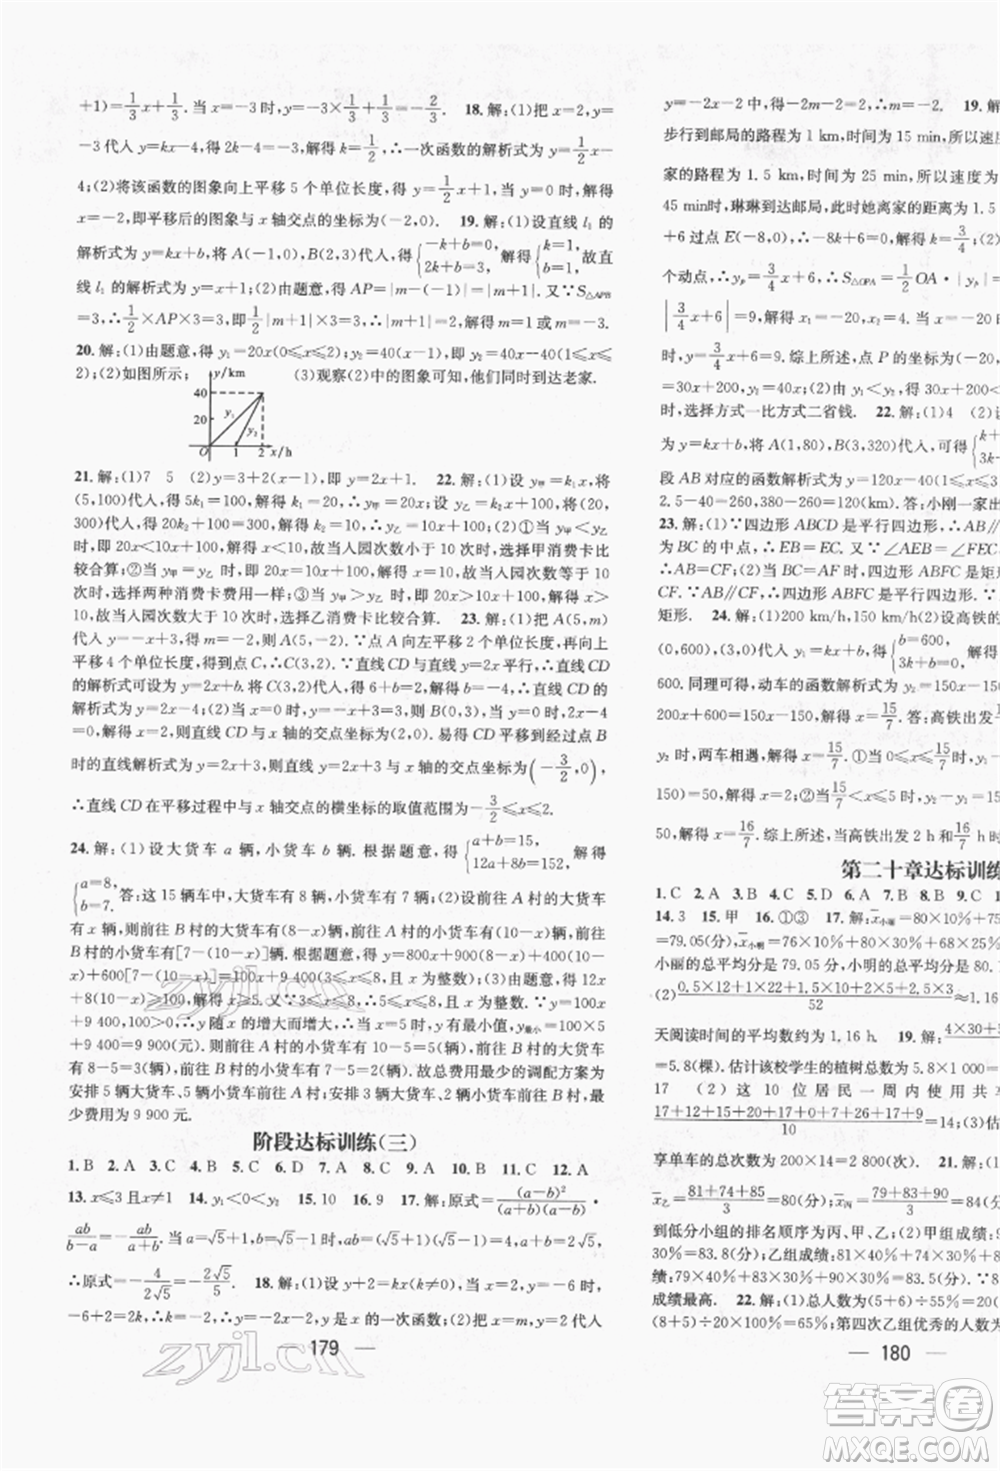 +1)=1/3x+1/3.当x=-3时,y=-3×1/3+1/3=-2/3　18.解:(1)把x=2,y=
-3代入y=kx-4,得2k-4=-3,解得k=1/2,∴一次函数的解析式为y=1/2x-
4;(2)将该函数的图象向上平移5个单位长度,得y=1/2x+1,当y=0时,x=
-2,即平移后的图象与x轴交点的坐标为(-2,0).　19.解:(1)设直线l₁的
解析式为y=kx+b,代入A(-1,0),B(2,3)可得{-k+b=0,2k+b=3,解得{k=1,b=1,故直
线l₁的解析式为y=x+1;(2)由题意,得AP=|m-(-1)|=|m+1|.又∵S△APB
=3,∴1/2×AP×3=3,即1/2|m+1|×3=3,解得m=1或m=-3.
20.解:(1)由题意,得y₁=20x(0≤x≤2);y₂=40(x-1),即y₂=40x-40(1≤x≤
2)(2)如图所示;
y/km
40
20
O 1 2 x/h
y₁
y₂
(3)观察(2)中的图象可知,他们同时到达老家.
21.解:(1)7　5　(2)y=3+2(x-1),即y=2x+1.　22.解:(1)设y甲=k₁x,将
(5,100)代入,得5k₁=100,解得k₁=20,∴y甲=20x;设y乙=k₂x+100,将(20,
300)代入,得20k₂+100=300,解得k₂=10,∴y乙=10x+100;(2)①当y甲<y乙
时,即20x<10x+100,解得x<10,故当入园次数小于10次时,选择甲消费卡比
较合算;②当y甲=y乙时,即20x=10x+100,解得x=10,故当入园次数等于10次
时,选择两种消费卡费用一样;③当y甲>y乙时,即20x>10x+100,解得x>10,故
当入园次数大于10次时,选择乙消费卡比较合算.　23.解:(1)把A(5,m)
代入y=-x+3,得m=-5+3=-2,则A(5,-2).∵点A向左平移2个单位,再向上
平移4个单位得到点C,∴C(3,2).∵直线CD与y=2x平行,∴设直线CD
的解析式可设为y=2x+b.把C(3,2)代入,得6+b=2,解得b=-4,∴直线CD的
解析式为y=2x-4;(2)当x=0时,y=-x+3=3,则B(0,3),当y=0时,2x-4
=0,解得x=2,则直线CD与x轴的交点坐标为(2,0).易得CD平移到经过点B
时的直线解析式为y=2x+3,当y=0时,直线y=2x+3与x轴的交点坐标为(-3/2,0),
∴直线CD在平移过程中与x轴交点的横坐标的取值范围为-3/2≤x≤2.
24.解:(1)设大货车a辆,小货车b辆.根据题意,得{a+b=15,12a+8b=152,解得
{a=8,b=7.答:这15辆车中,大货车有8辆,小货车有7辆;(2)设前往A村的大货车
有x辆,则前往B村的大货车有(8-x)辆,前往A村的小货车有(10-x)辆,前往
B村的小货车有[7-(10-x)]辆.根据题意,得y=800x+900(8-x)+400(10-
x)+600[7-(10-x)]=100x+9 400(3≤x≤8,且x为整数);(3)由题意,得12x
+8(10-x)≥100,解得x≥5.又∵3≤x≤8,∴5≤x≤8,且x为整数.∵y=100x
+9 400,100>0,∴y随x的增大而增大,∴当x=5时,y有最小值,y最小=100×5
+9 400=9 900(元).则前往A村的小货车有10-5=5(辆),前往B村的大货车
有8-5=3(辆),前往B村的小货车有7-5=2(辆).故总费用最少的调配方案为
安排5辆大货车、5辆小货车前往A村,3辆大货车、2辆小货车前往B村,
最少费用为9 900元.
阶段达标训练(三)
1.B　2.A　3.B　4.C　5.C　6.D　7.A　8.D　9.A　10.C　11.B　12.A
13.x≤5　14.y₁<y₂　15.10　16.9　17.解:原式=(a-b)²/(a+b)(a-b)·
ab/b-a=-ab/a+b.当a=√5+1,b=√5-1时,ab=(√5+1)(√5-1)=4,a+b=2√5,
∴原式=-4/2√5=-2√5/5.　18.解:(1)设y+2=kx(k≠0),当x=-2时,y=-6时,
-6+2=2k,∴k=-2,∴y=-2x-2,y是x的一次函数;(2)把x=m,y=2代入
179
y=-2x-2,得-2m-2=2,∴m=-2.　19.解
步行到邮局的路程为1 km,时间为15 min,所以速度为
家的路程为1.5 km,时间为
45 min时,琳琳到达邮局,此时她离家的距离为1.5
+6过点E(-8,0),∴-8k+6=0,解得k=3/4;
个动点,∴yₚ=3/4x+6,∴S△OPA=1/2OA·|yₚ|
|3/4x+6|=9,解得x₁=-20,x₂=4.综上所述,点P的坐标为(-20,
=30x+200;(2)由题意,得y₁<y₂,得30x+200<
时,选择方式一比方式二省钱.　22.解:(1)4　(2)设
为y=kx+b,将A(1,80),B(3,320)代入,可得
段AB对应的函数解析式为y=120x-40
2.5-40=260,380-260=120,180-120
23.解:(1)∵四边形ABCD是平行四边形,∴AB
为BC的中点,∴EB=EC.又∵∠AEB=∠FEC
CF.又∵当BC=AF时,四边形ABFC是矩形
矩形.　24.解:(1)200 km/h,150 km/h(2)设高铁的
(0,600),(3,0)代入,得{b=600,3k+b=0,解得
600.同理可得,动车的函数解析式为y₂=150x
200x+600=150x-150,解得x=15/7.答:高铁出发
y₂时,两车相遇,解得x=15/7;当15/7<x≤3时,y₂-
150)=50,解得x=
50,解得x=16/7.综上所述,当高铁出发2 h和16/7
第二十章达标训练
1.C　2.A　3.C　4.C　5.D　6.A　7.A　8.B　9.C
14.3　15.甲　16.①③　17.解:x̄小丽=80×10%+75
=79.05(分),x̄小明=
小丽的总平均分是79.05分,小明的是80.
(2)0.5×12+1×22+1.5×10+2×5+2.5×3/52≈1.16
天阅读时间的平均数约为1.16 h.　19.解:4×30+5
=5.8(棵).估计该校学生的植树总数为5.8×1 000=
17　(2)这10位居民一周内使用共享
17+12+15+20+17+0+7+26+17+9/10=14;(3)估
享单车的总次数为200×14=2 800(次).　21.解:(1)
x̄乙=81+74+85/3=80(分),x̄丙=79+83+90/3=84(分)
到低分小组的排名顺序为丙、甲、乙;(2)甲组成绩:90
30%=83.8(分),乙组成绩:81×
79×40%+83×30%+90×30%=83.5(分).∵83.8
成绩最高.　22.解:(1)总人数为(5+6)÷55%=20
(8+5)÷20×100%=65%;第四次乙组优秀的人数为
180
zyjl.cn
zyjl.cn
答案卷
MXQE.COM